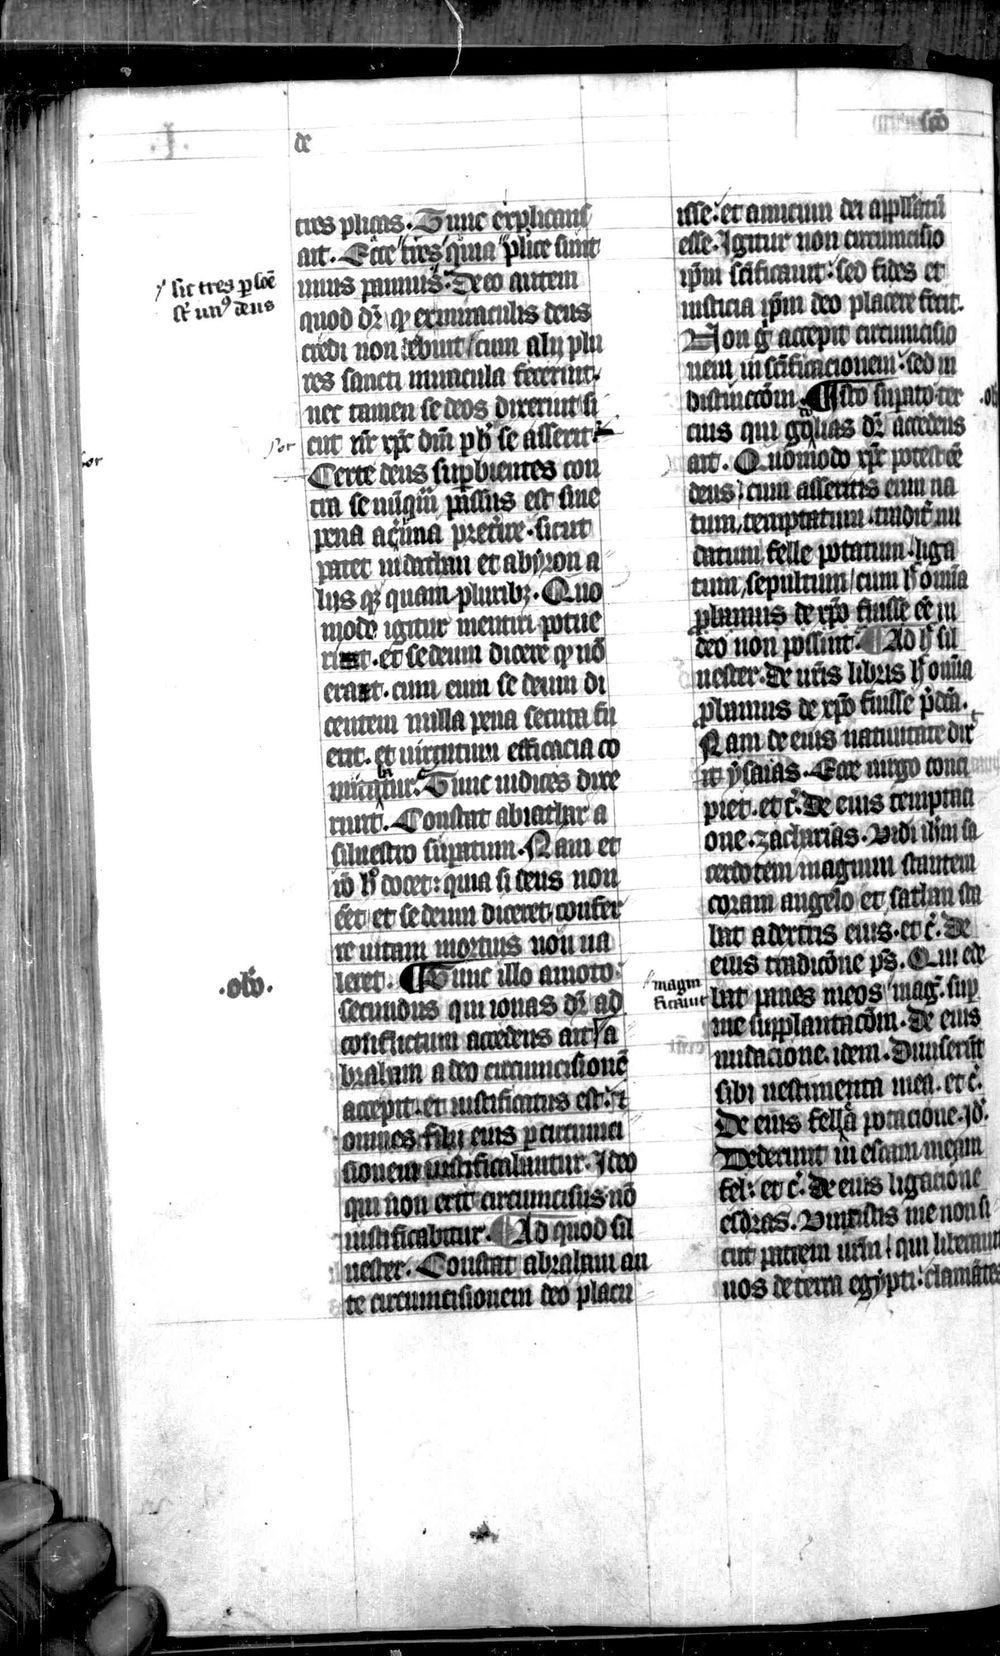 de
scō
tres plicas. Tunc explicans
ait. Ecce tres quia plice sunt
unus pannus. De eo autem
y sic tres ꝑsoē
st̄ unꝰ deus
quod dr̄ ꝙ ex miraculis deus
credi non debuit / cum alij plu
res sancti miracula fecerint.
nec tamen se deos dixerint si
cut nr̄ xp̄c dm̄ ꝑ h̄ se asserit.
Certe deus suꝑbientes con
tra se nūq̄m passus est sine
pena acͥma preteͥre. sicut
patet in dathan et abyron a
lijs qꝫ quam pluribꝫ. Quo
modo igitur mentiri potue
rit. et se deum dicere ꝙ nō
erat. cum eum se deum di
centem nulla pena secuta fu
erit. et virtutum efficacia co
mitatur. Tunc iudices dixe
runt. Constat abiathar a
siluestro suꝑatum. Nam et
rō h̄ docet: quia si deus non
eēt et se deum diceret. confer
re vitam mortuis non va
leret. ¶ Tunc illo amoto.
.olv̄.
secundus qui ionas dr̄ ad
conflictum accedens ait / a
braham a deo circumcisionē
accepit. et iustificatus est. et
omnes filij eius ꝑ circumci
sionem iustificabantur. Ideo
qui non erit circumcisus nō
iustificabitur. ¶ Ad quod sil
uester. Constat abraham an
te circumcisionem deo placu
isse: et amicum dei appll̄atū
esse. Igitur non circumcisio
ip̄m sc̄ificauit: sed fides et
iusticia ip̄m deo placere fecit.
Non gͦ accepit circumcisio
nem in sc̄ificacionem. sed in
distinctōm. ¶ Isto suꝑato ter
cius qui godolias dr̄ accedens
ait. Quomodo xp̄c potest eē
deus / cum asseritis eum na
tum, temptatum. traditͬ nu
datum, felle potatum. liga
tum, sepultum / cum h̄ omīa
ꝓbamus de xp̄o fuisse eē in
deo non possint. ¶ Ad h̄ sil
uester. De vr̄is libris h̄ omīa
ꝓbamus de xp̄o fuisse p̄dcā.
Nam de eius natiuitate dix
it ysaias. Ecce virgo conci
piet. et c̄. De eius temptaci
one. zacharias. Vidi ih̄m sa
cerdotem magnum stantem
coram angelo et sathan sta
bat a dextris eius. et c̄. De
eius tradicōne ps̄. Qui ede
bat panes meos mag. suꝑ
magni
ficauit
me supplantacōm. De eius
nudacione. idem. Diuiserūt
sibi vestimenta mea. et c̄.
De eius fellea potacione. id̄.
Dederunt in escam meam
fel: et c̄. de eius ligacione
esdras. Vinxistis me non si
cut patrem vrm̄ / qui liberaui
uos de terra egypti: clamātes